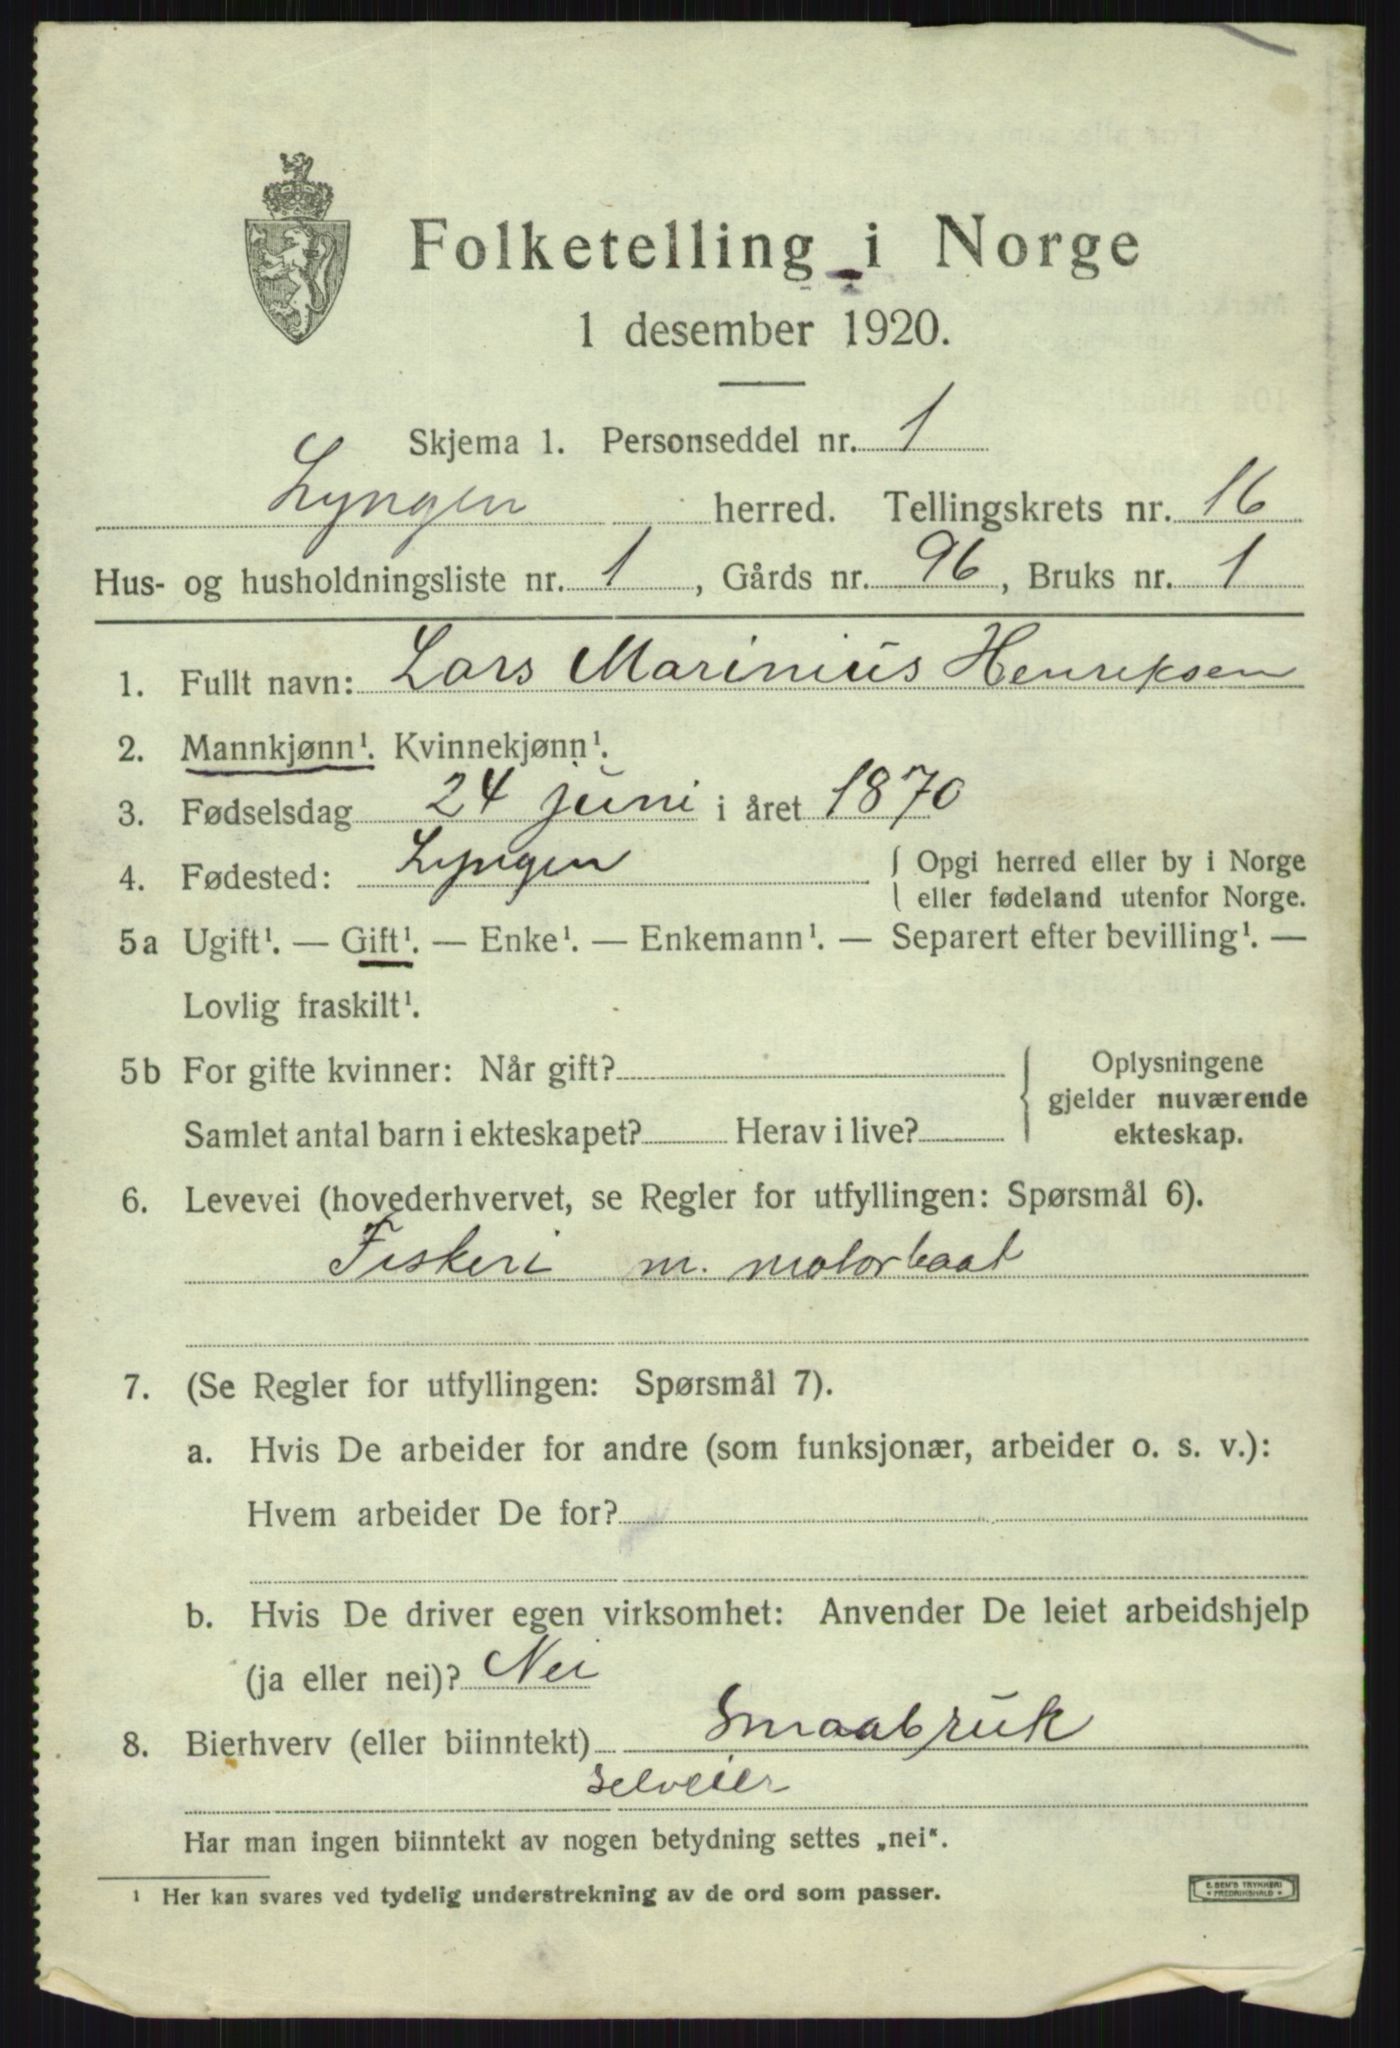 Folketelling i Norge
1 desember 1920.
Skjema 1. Personseddel nr. 1
Lyngen herred. Tellingskrets nr. 16
Hus- og husholdningsliste nr. 1, Gårds nr. 96, Bruks nr. 1
1. Fullt navn: Lars Marinius Henriksen
2. Mannkjønn¹. Kvinnekjønn¹.
3. Fødselsdag 24 juni i året 1870
4. Fødested: Lyngen { Opgi herred eller by i Norge
eller fødeland utenfor Norge.
5a Ugift¹. — Gift¹. — Enke¹. — Enkemann¹. — Separert efter bevilling¹. —
Lovlig fraskilt¹.
5b For gifte kvinner: Når gift?
Samlet antal barn i ekteskapet? Herav i live?
{ Oplysningene
gjelder nuværende
ekteskap.
6. Levevei (hovederhvervet, se Regler for utfyllingen: Spørsmål 6).
Fiskeri m. motorbaat
7. (Se Regler for utfyllingen: Spørsmål 7).
a. Hvis De arbeider for andre (som funksjonær, arbeider o. s. v.):
Hvem arbeider De for?
b. Hvis De driver egen virksomhet: Anvender De leiet arbeidshjelp
(ja eller nei)? Nei
8. Bierhverv (eller biinntekt) Smaabruk
selveier
Har man ingen biinntekt av nogen betydning settes „nei".
¹ Her kan svares ved tydelig understrekning av de ord som passer.
E. SEM'S TRYKKERI
FREDRIKSHALD